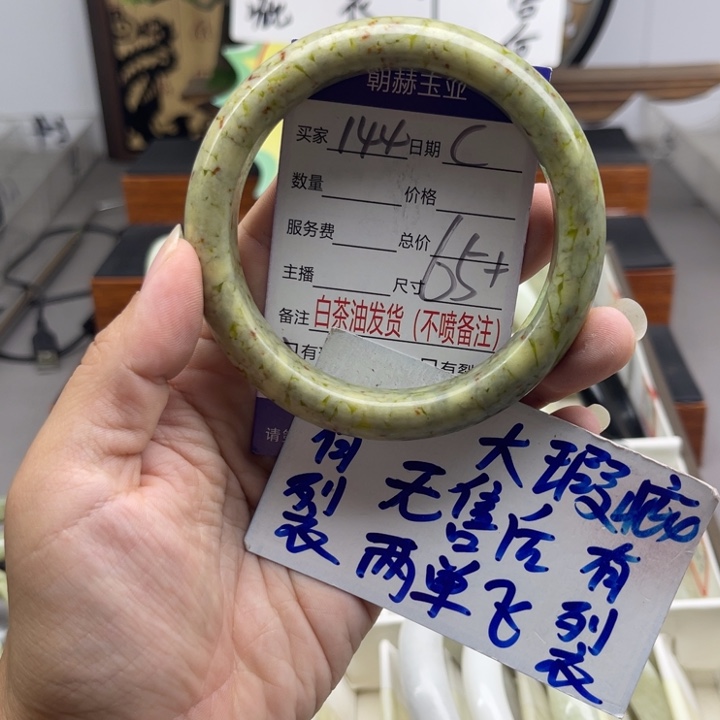 疵
朝赫玉业
买家 144 日期 C
数量 价格
服务费 总价
主播 尺寸 65+
备注 白茶油发货（不喷备注）
有裂
请
大瑕疵
无售后
两单飞
有列表